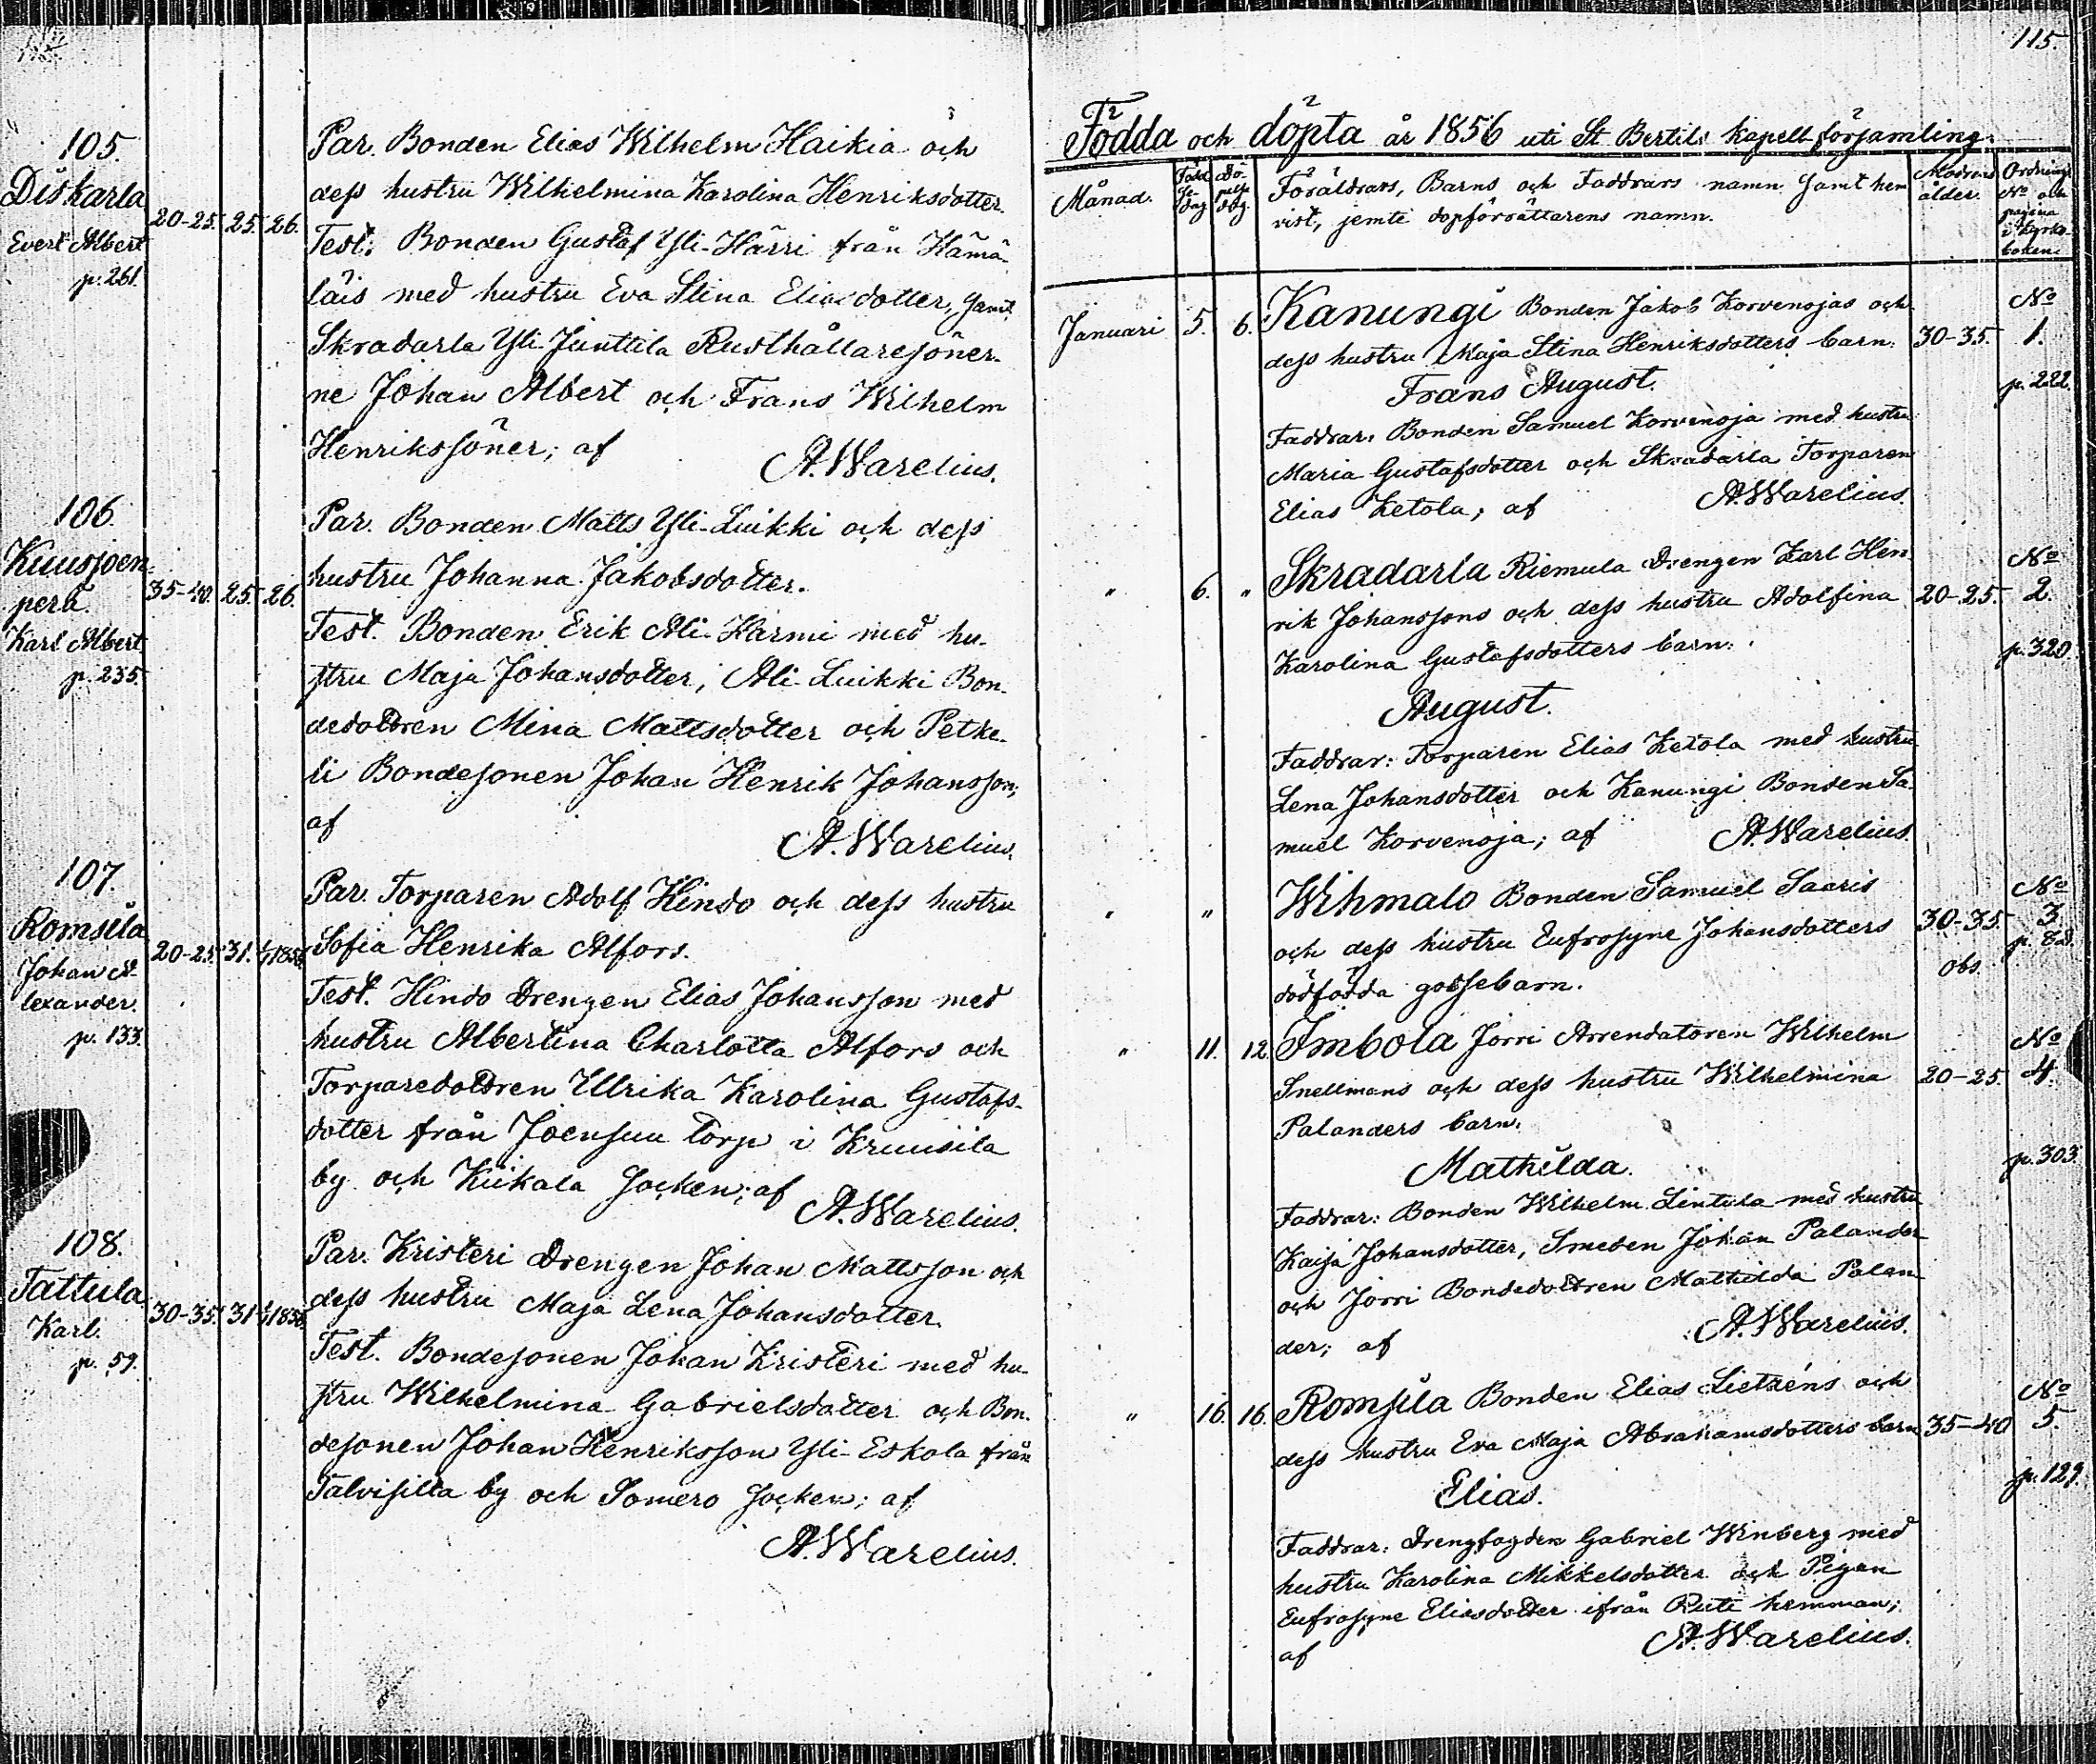 105.
Diskarla
Evert Albert
p. 261.
20-25. 25. 26.
Par. Bonden Elias Wilhelm Haikia och
dess hustru Wilhelmina Karolina Henriksdotter.
Test: Bonden Gustaf Yli-Härri från Hämä-
läis med hustru Eva Stina Eliasdotter, samt
Skradarla Yli-Junttila Rusthållaresöner-
ne Johan Albert och Frans Wilhelm
Henrikssöner; af
A. Warelius.
106.
Kuusjoen-
perä.
Karl Albert
p. 235.
35-40. 25. 26.
Par. Bonden Matts Yli-Luikki och dess
hustru Johanna Jakobsdotter.
Test. Bonden Erik Ali-Härmi med hu-
stru Maja Johansdotter, Ali-Luikki Bon-
dedottren Mina Mattsdotter och Petke-
li Bondesonen Johan Henrik Johansson;
af
A. Warelius.
107.
Romsila
Johan A-
lexander.
p. 133.
20-25. 31. 1/1 1856.
Par. Torparen Adolf Hindo och dess hustru
Sofia Henrika Alfors.
Test. Hindo Drengen Elias Johansson med
hustru Albertina Charlotta Alfors och
Torparedottren Ullrika Karolina Gustafs-
dotter från Joensuu Torp i Kruusila
by och Kiikala Socken; af
A. Warelius.
108.
Tattula
Karl.
p. 59.
30-35. 31. 1/1 1856.
Par. Kristeri Drengen Johan Mattsson och
dess hustru Maja Lena Johansdotter.
Test. Bondesonen Johan Kristeri med hu-
stru Wilhelmina Gabrielsdotter och Bon-
desonen Johan Henriksson Yli-Eskola från
Talvisilta by och Somero Socken; af
A. Warelius.
115.
Födda och döpta år 1856 uti St Bertils kapellförsamling.
Månad.
Född
dag
Dö-
dag.
Föräldrars, Barns och Faddrars namn samt hem
vist, jemte dopförrättarens namn.
Modrens
ålder.
Ordnings
No och
pagina
i Kyrko-
boken.
Januari 5. 6. Kanungi Bonden Jakob Korvenojas och
dess hustru Maja Stina Henriksdotters barn. 30-35. No 1.
Frans August. p. 222.
Faddrar: Bonden Samuel Korvenoja med hustru
Maria Gustafsdotter och Skradarla Torparen
Elias Ketola; af A. Warelius.
" 6. " Skradarla Riemula Drengen Karl Hen-
rik Johanssons och dess hustru Adolfina 20-25. No 2.
Karolina Gustafsdotters barn. p. 320.
August.
Faddrar: Torparen Elias Ketola med hustru
Lena Johansdotter och Kanungi Bonden Sa-
muel Korvenoja; af A. Warelius.
" " Wihmalo Bonden Samuel Saaris No
och dess hustru Eufrosyne Johansdotters 30-35. 3
dödfödda gossebarn. obs. p. 82.
" 11. 12. Imbola Jörri Arrendatoren Wilhelm No
Snellmans och dess hustru Wilhelmina 20-25. 4.
Palanders barn.
Mathilda. p. 303.
Faddrar: Bonden Wilhelm Lintula med hustru
Kaisa Johansdotter, Smeden Johan Palander
och Jörri Bondedottren Mathilda Palan-
der; af A. Warelius.
" 16. 16. Romsila Bonden Elias Lietzéns och No
dess hustru Eva Maja Abrahamsdotters barn 35-40 5.
Elias. p. 129.
Faddrar: Drengfogden Gabriel Winberg med
hustru Karolina Mikkelsdotter och Pigan
Eufrosyne Eliasdotter ifrån Ruti hemman;
af A. Warelius.